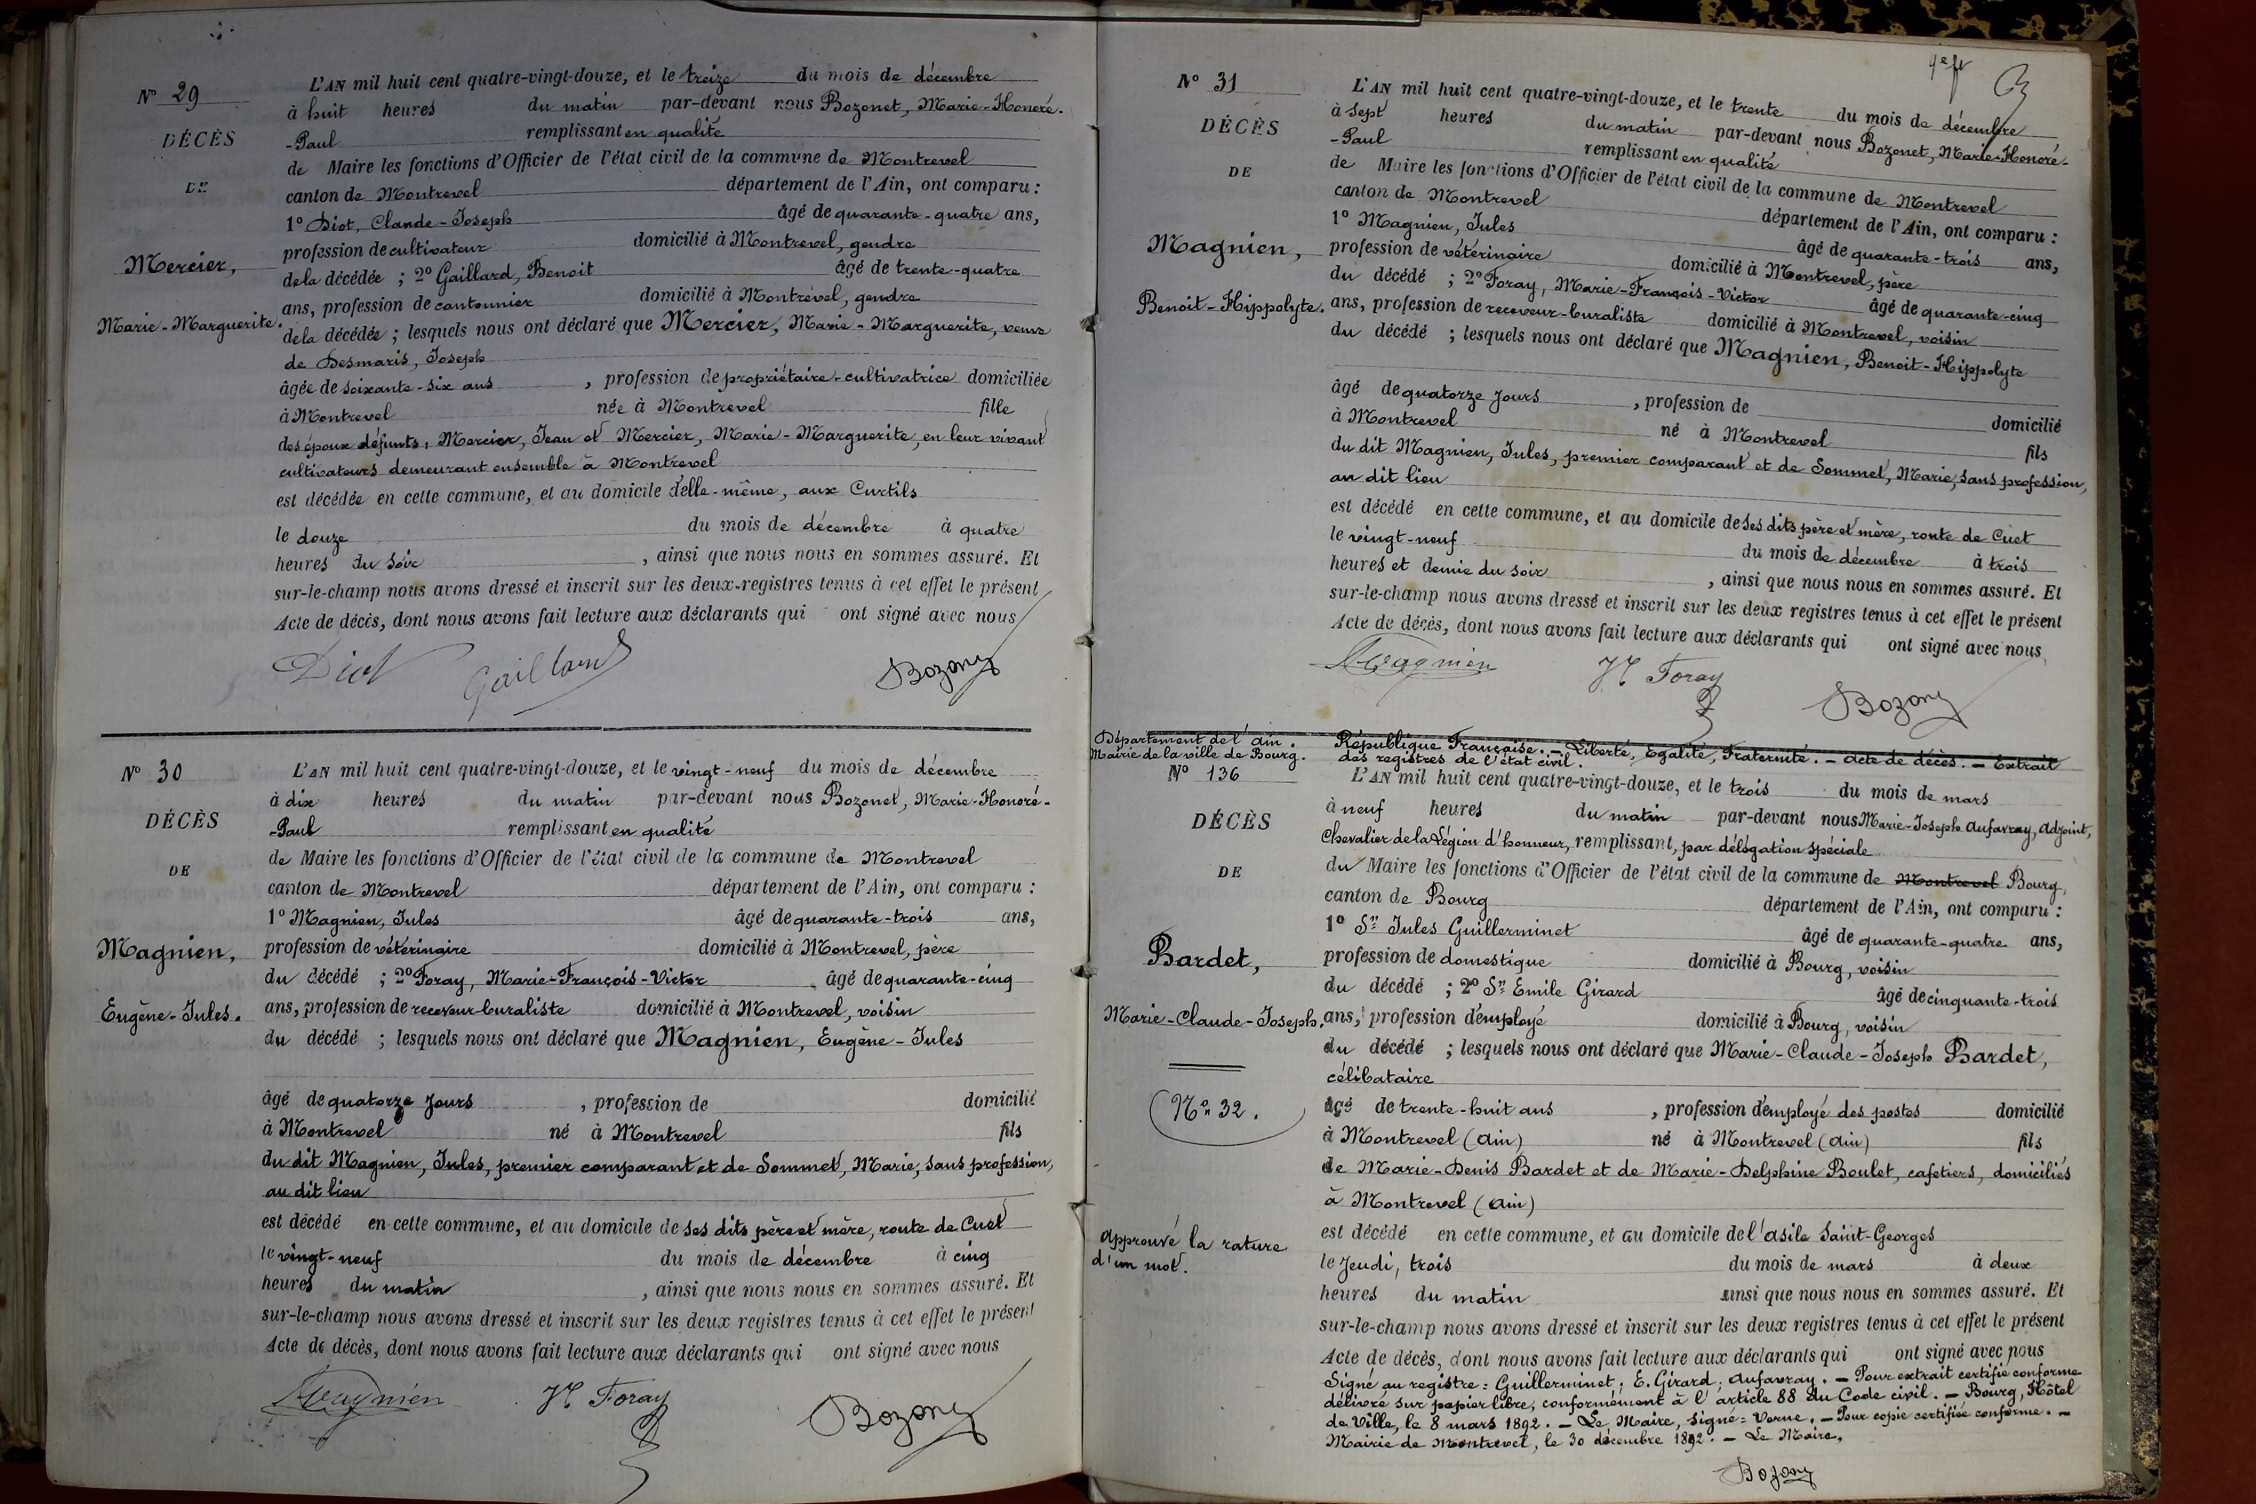 N° 29
DÉCÈS
DE
Mercier,
Marie-Marguerite.
L'AN mil huit cent quatre-vingt-douze, et le treize du mois de décembre
à huit heures du matin par-devant nous Bozonet, Marie-Honoré-
-Paul remplissant en qualité
de Maire les fonctions d'Officier de l'état civil de la commune de Montrevel
canton de Montrevel département de l'Ain, ont comparu :
1° Diot, Claude-Joseph âgé de quarante-quatre ans,
profession de cultivateur domicilié à Montrevel, gendre
de la décédée ; 2° Gaillard, Benoit âgé de trente-quatre
ans, profession de cantonnier domicilié à Montrevel, gendre
de la décédée ; lesquels nous ont déclaré que Mercier, Marie-Marguerite, veuve
de Desmaris, Joseph
âgée de soixante-six ans , profession de propriétaire-cultivatrice domiciliée
à Montrevel née à Montrevel fille
des époux défunts, Mercier, Jean et Mercier, Marie-Marguerite, en leur vivant
cultivateurs demeurant ensemble à Montrevel
est décédée en cette commune, et au domicile d'elle-même, aux Curtils
le douze du mois de décembre à quatre
heures du soir , ainsi que nous nous en sommes assuré. Et
sur-le-champ nous avons dressé et inscrit sur les deux registres tenus à cet effet le présent
Acte de décès, dont nous avons fait lecture aux déclarants qui ont signé avec nous
Diot Gaillard Bozony
N° 30
DÉCÈS
DE
Magnien,
Eugène-Jules.
L'AN mil huit cent quatre-vingt-douze, et le vingt-neuf du mois de décembre
à dix heures du matin par-devant nous Bozonet, Marie-Honoré-
-Paul remplissant en qualité
de Maire les fonctions d'Officier de l'état civil de la commune de Montrevel
canton de Montrevel département de l'Ain, ont comparu :
1° Magnien, Jules âgé de quarante-trois ans,
profession de vétérinaire domicilié à Montrevel, père
du décédé ; 2° Foray, Marie-François-Victor âgé de quarante-cinq
ans, profession de receveur-buraliste domicilié à Montrevel, voisin
du décédé ; lesquels nous ont déclaré que Magnien, Eugène-Jules
âgé de quatorze jours , profession de domicilié
à Montrevel né à Montrevel fils
du dit Magnien, Jules, premier comparant et de Sommet, Marie, sans profession,
au dit lieu
est décédé en cette commune, et au domicile de ses dits père et mère, route de Cuet
le vingt-neuf du mois de décembre à cinq
heures du matin , ainsi que nous nous en sommes assuré. Et
sur-le-champ nous avons dressé et inscrit sur les deux registres tenus à cet effet le présent
Acte de décès, dont nous avons fait lecture aux déclarants qui ont signé avec nous
Magnien Vr Foray Bozony
N° 31
DÉCÈS
DE
Magnien,
Benoit-Hippolyte.
L'AN mil huit cent quatre-vingt-douze, et le trente du mois de décembre
à sept heures du matin par-devant nous Bozonet, Marie-Honoré-
-Paul remplissant en qualité
de Maire les fonctions d'Officier de l'état civil de la commune de Montrevel
canton de Montrevel département de l'Ain, ont comparu :
1° Magnien, Jules âgé de quarante-trois ans,
profession de vétérinaire domicilié à Montrevel, père
du décédé ; 2° Foray, Marie-François-Victor âgé de quarante-cinq
ans, profession de receveur-buraliste domicilié à Montrevel, voisin
du décédé ; lesquels nous ont déclaré que Magnien, Benoit-Hippolyte
âgé de quatorze jours , profession de domicilié
à Montrevel né à Montrevel fils
du dit Magnien, Jules, premier comparant et de Sommet, Marie, sans profession,
au dit lieu
est décédé en cette commune, et au domicile de ses dits père et mère, route de Cuet
le vingt-neuf du mois de décembre à trois
heures et demie du soir , ainsi que nous nous en sommes assuré. Et
sur-le-champ nous avons dressé et inscrit sur les deux registres tenus à cet effet le présent
Acte de décès, dont nous avons fait lecture aux déclarants qui ont signé avec nous
Magnien Vr Foray Bozony
Département de l'ain.
Mairie de la ville de Bourg.
N° 136
DÉCÈS
DE
Bardet,
Marie-Claude-Joseph.
N° 32.
approuvé la rature
d'un mot.
République Française. - Liberté, Egalité, Fraternité. - acte de décès. - Extrait
des registres de l'état civil.
L'AN mil huit cent quatre-vingt-douze, et le trois du mois de mars
à neuf heures du matin par-devant nous Marie-Joseph Aufavray, adjoint,
Chevalier de la Légion d'honneur, remplissant, par délégation spéciale
du Maire les fonctions d'Officier de l'état civil de la commune de Montrevel Bourg,
canton de Bourg département de l'Ain, ont comparu :
1° Sr Jules Guillerminet âgé de quarante-quatre ans,
profession de domestique domicilié à Bourg, voisin
du décédé ; 2° Sr Emile Girard âgé de cinquante-trois
ans, profession d'employé domicilié à Bourg, voisin
du décédé ; lesquels nous ont déclaré que Marie-Claude-Joseph Bardet,
célibataire
âgé de trente-huit ans , profession d'employé des postes domicilié
à Montrevel (ain) né à Montrevel (ain) fils
de Marie-Denis Bardet et de Marie-Delphine Boulet, cafetiers, domiciliés
à Montrevel (ain)
est décédé en cette commune, et au domicile de l'asile Saint-Georges
le Jeudi, trois du mois de mars à deux
heures du matin ainsi que nous nous en sommes assuré. Et
sur-le-champ nous avons dressé et inscrit sur les deux registres tenus à cet effet le présent
Acte de décès, dont nous avons fait lecture aux déclarants qui ont signé avec nous
Signé au registre : Guillerminet ; E. Girard ; Aufavray. - Pour extrait certifié conforme
délivré sur papier libre, conformément à l'article 88 du Code civil. - Bourg, Hôtel
de Ville, le 8 mars 1892. - Le Maire, signé = Verne. - Pour copie certifiée conforme. -
Mairie de Montrevel, le 30 décembre 1892. - Le Maire,
Bozony